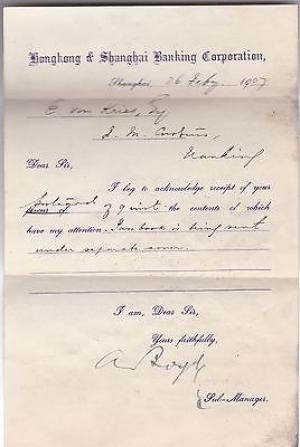 Hongkong & Shanghai Banking Corporation,
Shanghai, 26 Feby. 1907
E. von Stries, Esq
I. M. Customs,
Nanking
Dear Sir,
I beg to acknowledge receipt of your
favour of 9 inst the contents of which
have my attention. Passbook is being sent
under separate cover.
I am, Dear Sir,
Yours faithfully,
A Boyd
Sub-Manager.